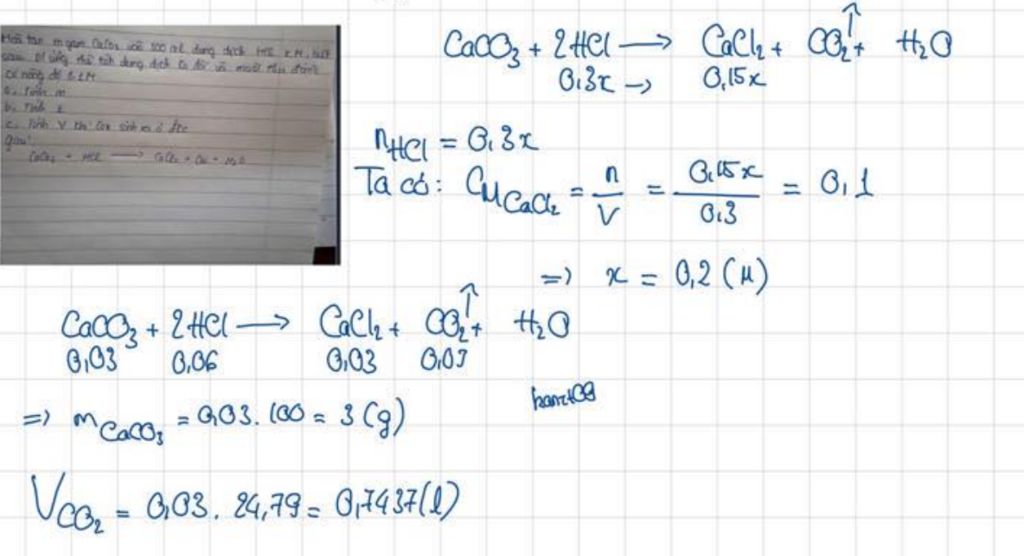 Hoà tan m gam CaCO3 vào 300 ml dung dịch HCl x M, biết
phản ứng thể tích dung dịch và muối thu được
có nồng độ 0,1M
a, Tính m
b, Tính x
c, Tính V khí CO2 sinh ra ở đkc
Giải
CaCO3 + HCl → CaCl2 + CO2 + H2O
CaCO₃ + 2HCl → CaCl₂ + CO₂↑ + H₂O
0,3x → 0,15x
nHCl = 0,3x
Ta có: CM CaCl₂ = n/V = 0,15x/0,3 = 0,1
=> x = 0,2 (M)
CaCO₃ + 2HCl → CaCl₂ + CO₂↑ + H₂O
0,03 0,06 0,03 0,03
=> mCaCO₃ = 0,03.100 = 3 (g)
VCO₂ = 0,03. 24,79 = 0,7437(l)